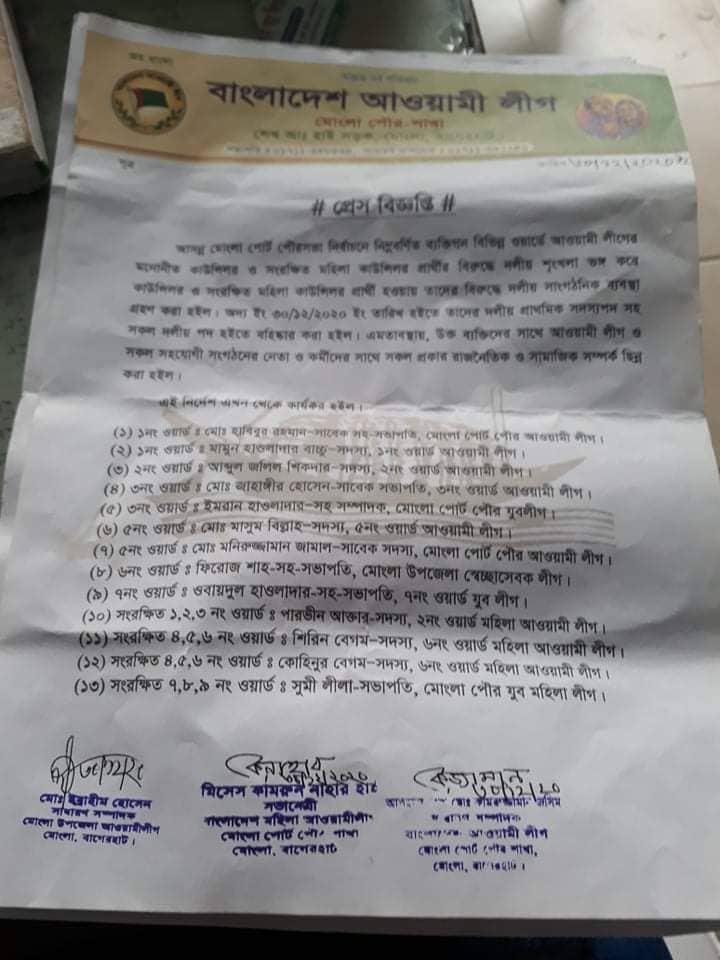 জয় বাংলা
বাংলাদেশ আওয়ামী লীগ
মোংলা পৌর-শাখা
সূত্র
৩০/১২/২০২০ইং
# প্রেস বিজ্ঞপ্তি #
আসন্ন মোংলা পোর্ট পৌরসভা নির্বাচনে নিম্নবর্ণিত ব্যক্তিগন বিভিন্ন ওয়ার্ডে আওয়ামী লীগের
মনোনীত কাউন্সিলর ও সংরক্ষিত মহিলা কাউন্সিলর প্রার্থীর বিরুদ্ধে দলীয় শৃংখলা ভঙ্গ করে
কাউন্সিলর ও সংরক্ষিত মহিলা কাউন্সিলর প্রার্থী হওয়ায় তাদের বিরুদ্ধে দলীয় সাংগঠনিক ব্যবস্থা
গ্রহণ করা হইল। অদ্য ইং ৩০/১২/২০২০ ইং তারিখ হইতে তাদের দলীয় প্রাথমিক সদস্যপদ সহ
সকল দলীয় পদ হইতে বহিষ্কার করা হইল। এমতাবস্থায়, উক্ত ব্যক্তিদের সাথে আওয়ামী লীগ ও
সকল সহযোগী সংগঠনের নেতা ও কর্মীদের সাথে সকল প্রকার রাজনৈতিক ও সামাজিক সম্পর্ক ছিন্ন
করা হইল।
এই নির্দেশ এখন থেকে কার্যকর হইল।
(১) ১নং ওয়ার্ড ঃ মোঃ হাবিবুর রহমান-সাবেক সহ-সভাপতি, মোংলা পোর্ট পৌর আওয়ামী লীগ।
(২) ১নং ওয়ার্ড ঃ মামুন হাওলাদার বাচ্চু-সদস্য, ১নং ওয়ার্ড আওয়ামী লীগ।
(৩) ২নং ওয়ার্ড ঃ আব্দুল জলিল শিকদার-সদস্য, ২নং ওয়ার্ড আওয়ামী লীগ।
(৪) ৩নং ওয়ার্ড ঃ মোঃ জাহাঙ্গীর হোসেন-সাবেক সভাপতি, ৩নং ওয়ার্ড আওয়ামী লীগ।
(৫) ৩নং ওয়ার্ড ঃ ইমরান হাওলাদার-সহ সম্পাদক, মোংলা পোর্ট পৌর যুবলীগ।
(৬) ৫নং ওয়ার্ড ঃ মোঃ মাসুম বিল্লাহ-সদস্য, ৫নং ওয়ার্ড আওয়ামী লীগ।
(৭) ৫নং ওয়ার্ড ঃ মোঃ মনিরুজ্জামান জামাল-সাবেক সদস্য, মোংলা পোর্ট পৌর আওয়ামী লীগ।
(৮) ৬নং ওয়ার্ড ঃ ফিরোজ শাহ-সহ-সভাপতি, মোংলা উপজেলা স্বেচ্ছাসেবক লীগ।
(৯) ৭নং ওয়ার্ড ঃ ওবায়দুল হাওলাদার-সহ-সভাপতি, ৭নং ওয়ার্ড যুব লীগ।
(১০) সংরক্ষিত ১,২,৩ নং ওয়ার্ড ঃ পারভীন আক্তার-সদস্য, ২নং ওয়ার্ড মহিলা আওয়ামী লীগ।
(১১) সংরক্ষিত ৪,৫,৬ নং ওয়ার্ড ঃ শিরিন বেগম-সদস্য, ৬নং ওয়ার্ড মহিলা আওয়ামী লীগ।
(১২) সংরক্ষিত ৪,৫,৬ নং ওয়ার্ড ঃ কোহিনুর বেগম-সদস্য, ৬নং ওয়ার্ড মহিলা আওয়ামী লীগ।
(১৩) সংরক্ষিত ৭,৮,৯ নং ওয়ার্ড ঃ সুমী লীলা-সভাপতি, মোংলা পৌর যুব মহিলা লীগ।
মোঃ ইব্রাহীম হোসেন
সাধারণ সম্পাদক
মোংলা উপজেলা আওয়ামীলীগ
মোংলা, বাগেরহাট।
মিসেস কামরুন নাহার হাই
সভানেত্রী
বাংলাদেশ মহিলা আওয়ামীলীগ
মোংলা পোর্ট পৌর শাখা
মোংলা, বাগেরহাট
সম্পাদক
আওয়ামী লীগ
মোংলা পোর্ট পৌর শাখা,
মোংলা, বাগেরহাট।